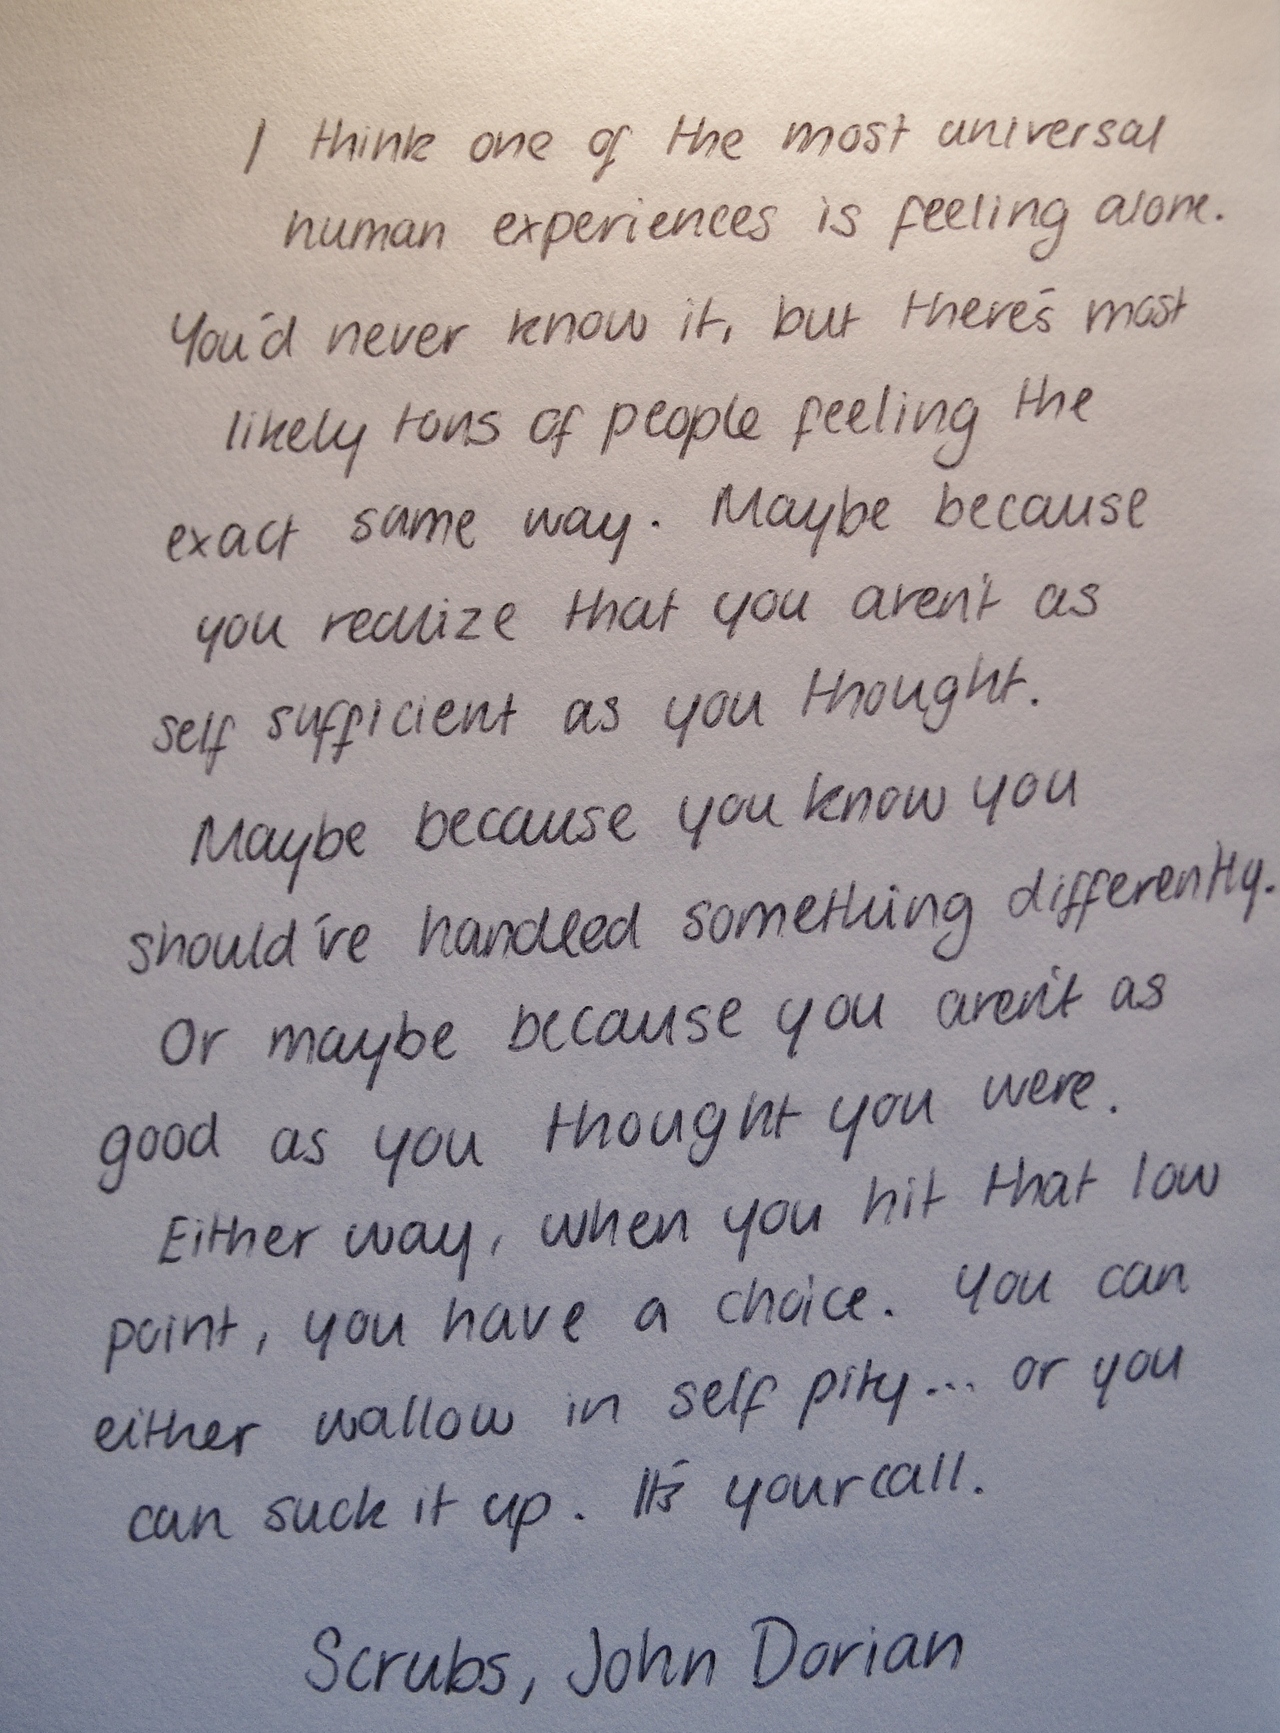 I think one of the most universal
human experiences is feeling alone.
You'd never know it, but there's most
likely tons of people feeling the
exact same way. Maybe because
you realize that you aren't as
self sufficient as you thought.
Maybe because you know you
should've handled something differently.
Or maybe because you aren't as
good as you thought you were.
Either way, when you hit that low
point, you have a choice. You can
either wallow in self pity... or you
can suck it up. It's your call.
Scrubs, John Dorian